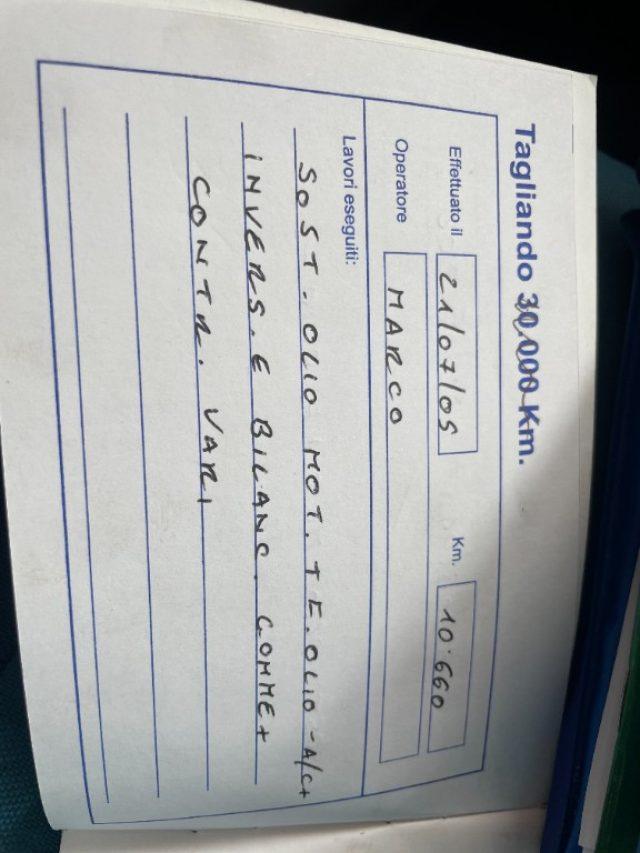 Tagliando 30.000 Km.
Effettuato il 21/07/05 Km. 10.660
Operatore MARCO
Lavori eseguiti:
SOST. OLIO MOT. + F. OLIO - A/C+
INVERS. E BILANC. GOMME +
CONTR. VARI